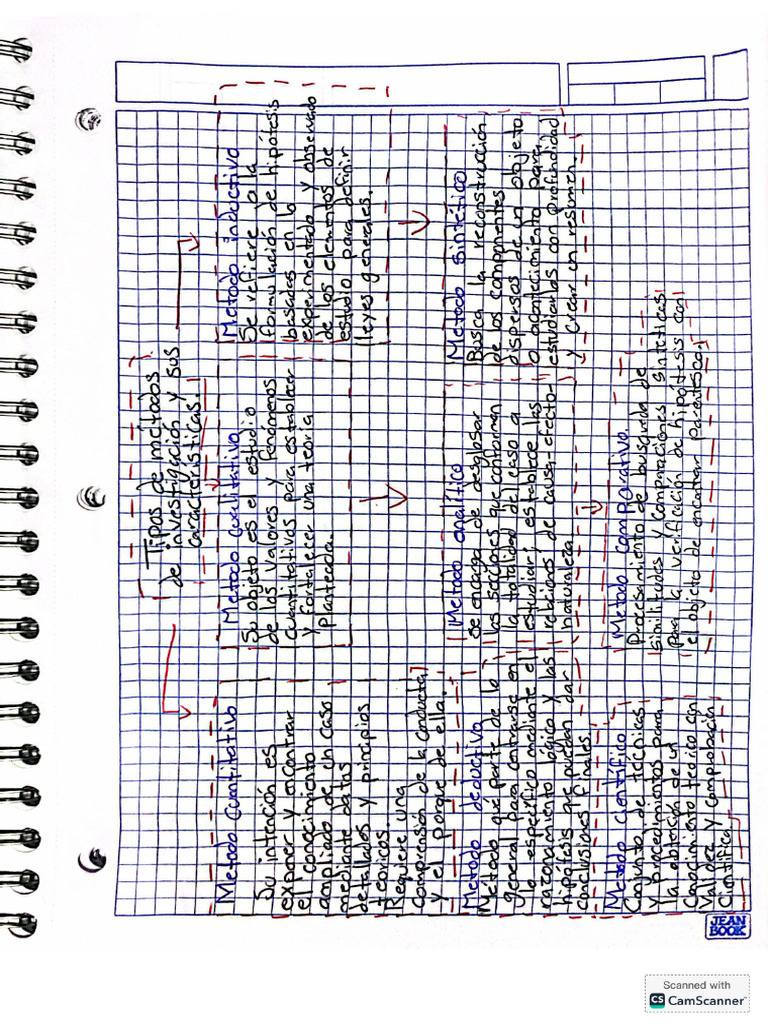 Tipos de métodos
de investigación y sus
características.
Metodo Cuantitativo
Su intención es
exponer y encontrar
el conocimiento
ampliado de un caso
mediante datos
detallados y principios
teoricos.
Requiere una
comprensión de la conducta
y el porque de ella.
Metodo Cualitativo
Su objeto es el estudio
de los valores y fenómenos
cuantitativos para establecer
y fortalecer una teoría
planteada.
Metodo inductivo
Se refiere a la
formulación de hipótesis
basadas en lo
experimentado y observado
de los elementos de
estudio para definir
leyes generales.
Metodo deductivo
Método que parte de lo
general para centrarse en
lo especifico mediante el
razonamiento lógico y las
hipótesis que puedan dar
conclusiones finales.
Metodo analítico
Se encarga de desglosar
las secciones que conforman
la totalidad del caso a
estudiar; establece las
relaciones de causa-efecto-
naturaleza
Metodo sintético
Busca la reconstrucción
de los componentes
dispersos de un objeto
o acontecimiento para
estudiarlos con profundidad
y crear un resumen.
Metodo científico
Conjunto de técnicas
y procedimientos para
la obtención de un
Conocimiento teorico con
validez y comprobación
Científica
Metodo comparativo
Procesamiento de busqueda de
similitudes y Comparaciones sinteticas
para la verificación de hipótesis con
el objeto de encontrar Parentesco.
JEAN
BOOK
Scanned with
CS CamScanner